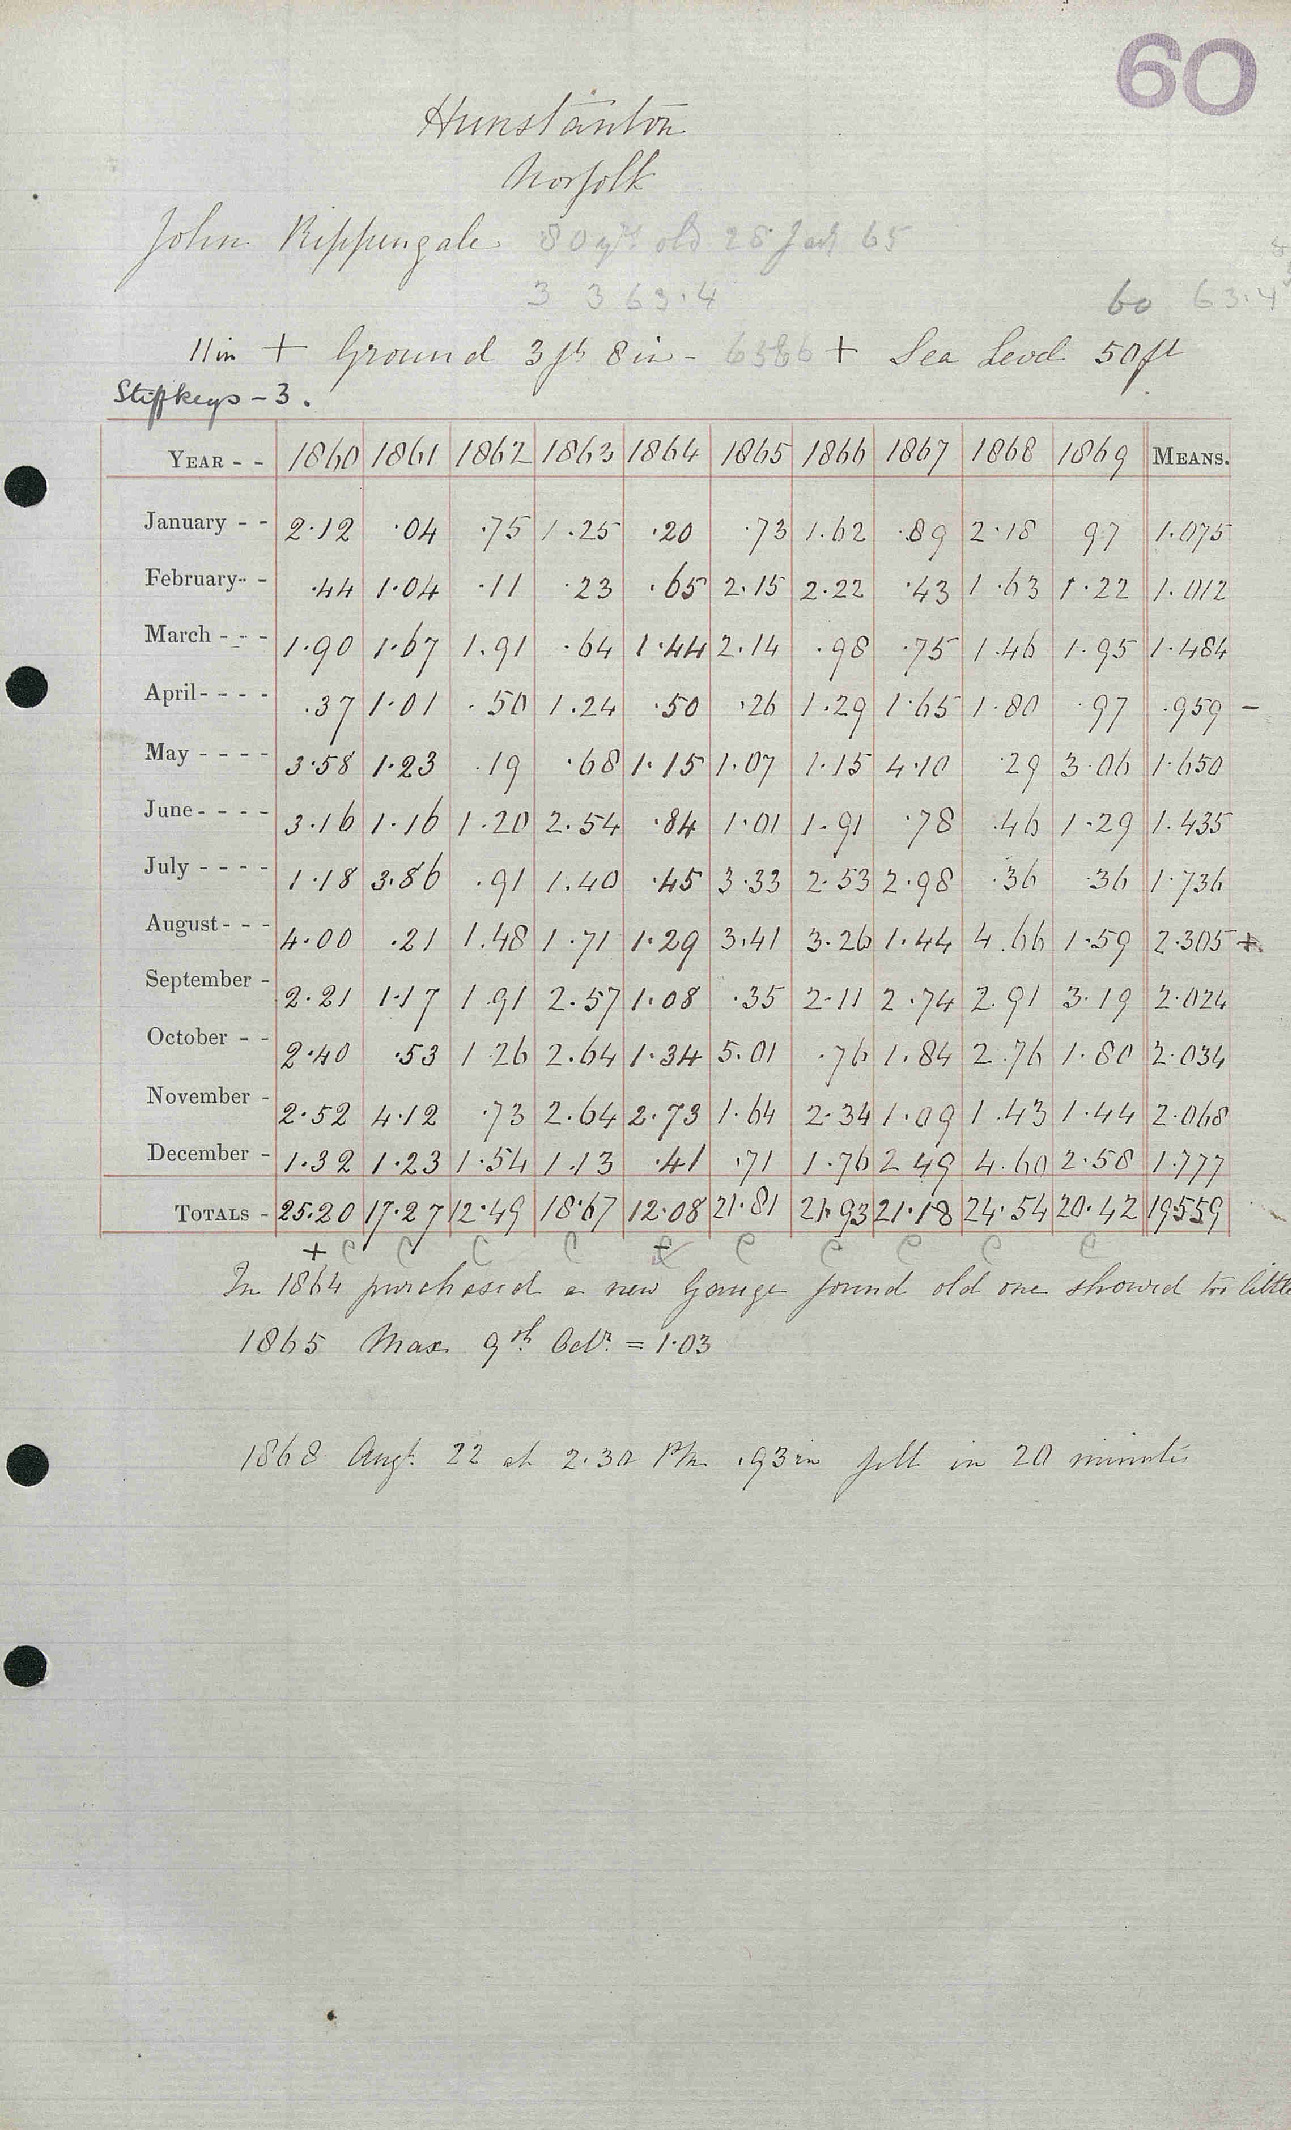 60
Hunstanton
Norfolk
John Rippingale 80 yrs old 28 65
3 3 63.4
60 63.4
11 in + Ground 3 ft 8 in - + Sea Level 50 ft
Stiffkeys - 3.
YEAR - - 1860 1861 1862 1863 1864 1865 1866 1867 1868 1869 MEANS.
January - - 2.12 .04 .75 1.25 .20 .73 1.62 .89 2.18 97 1.075
February - - .44 1.04 .11 .23 .65 2.15 2.22 .43 1.63 1.22 1.012
March - - - 1.90 1.67 1.91 .64 1.44 2.14 .98 .75 1.46 1.95 1.484
April - - - - .37 1.01 .50 1.24 .50 .26 1.29 1.65 1.80 .97 .959 -
May - - - - 3.58 1.23 .19 .68 1.15 1.07 1.15 4.10 29 3.06 1.650
June - - - - 3.16 1.16 1.20 2.54 .84 1.01 1.91 .78 .46 1.29 1.435
July - - - - 1.18 3.86 .91 1.40 .45 3.33 2.53 2.98 .36 .36 1.736
August - - - 4.00 .21 1.48 1.71 1.29 3.41 3.26 1.44 4.66 1.59 2.305 +
September - 2.21 1.17 1.91 2.57 1.08 .35 2.11 2.74 2.91 3.19 2.024
October - - 2.40 .53 1.26 2.64 1.34 5.01 .76 1.84 2.76 1.80 2.034
November - 2.52 4.12 .73 2.64 2.73 1.64 2.34 1.09 1.43 1.44 2.068
December - 1.32 1.23 1.54 1.13 .41 .71 1.76 2 49 4.60 2.58 1.777
TOTALS - 25.20 17.27 12.49 18.67 12.08 21.81 21.93 21.18 24.54 20.42 19559
+ c c c c - c c c c c
In 1864 purchased a new Gauge found old one showed too little
1865 Max 9th Octr. = 1.03
1868 Augt. 22 at 2.30 PM .93 in fell in 20 minutes